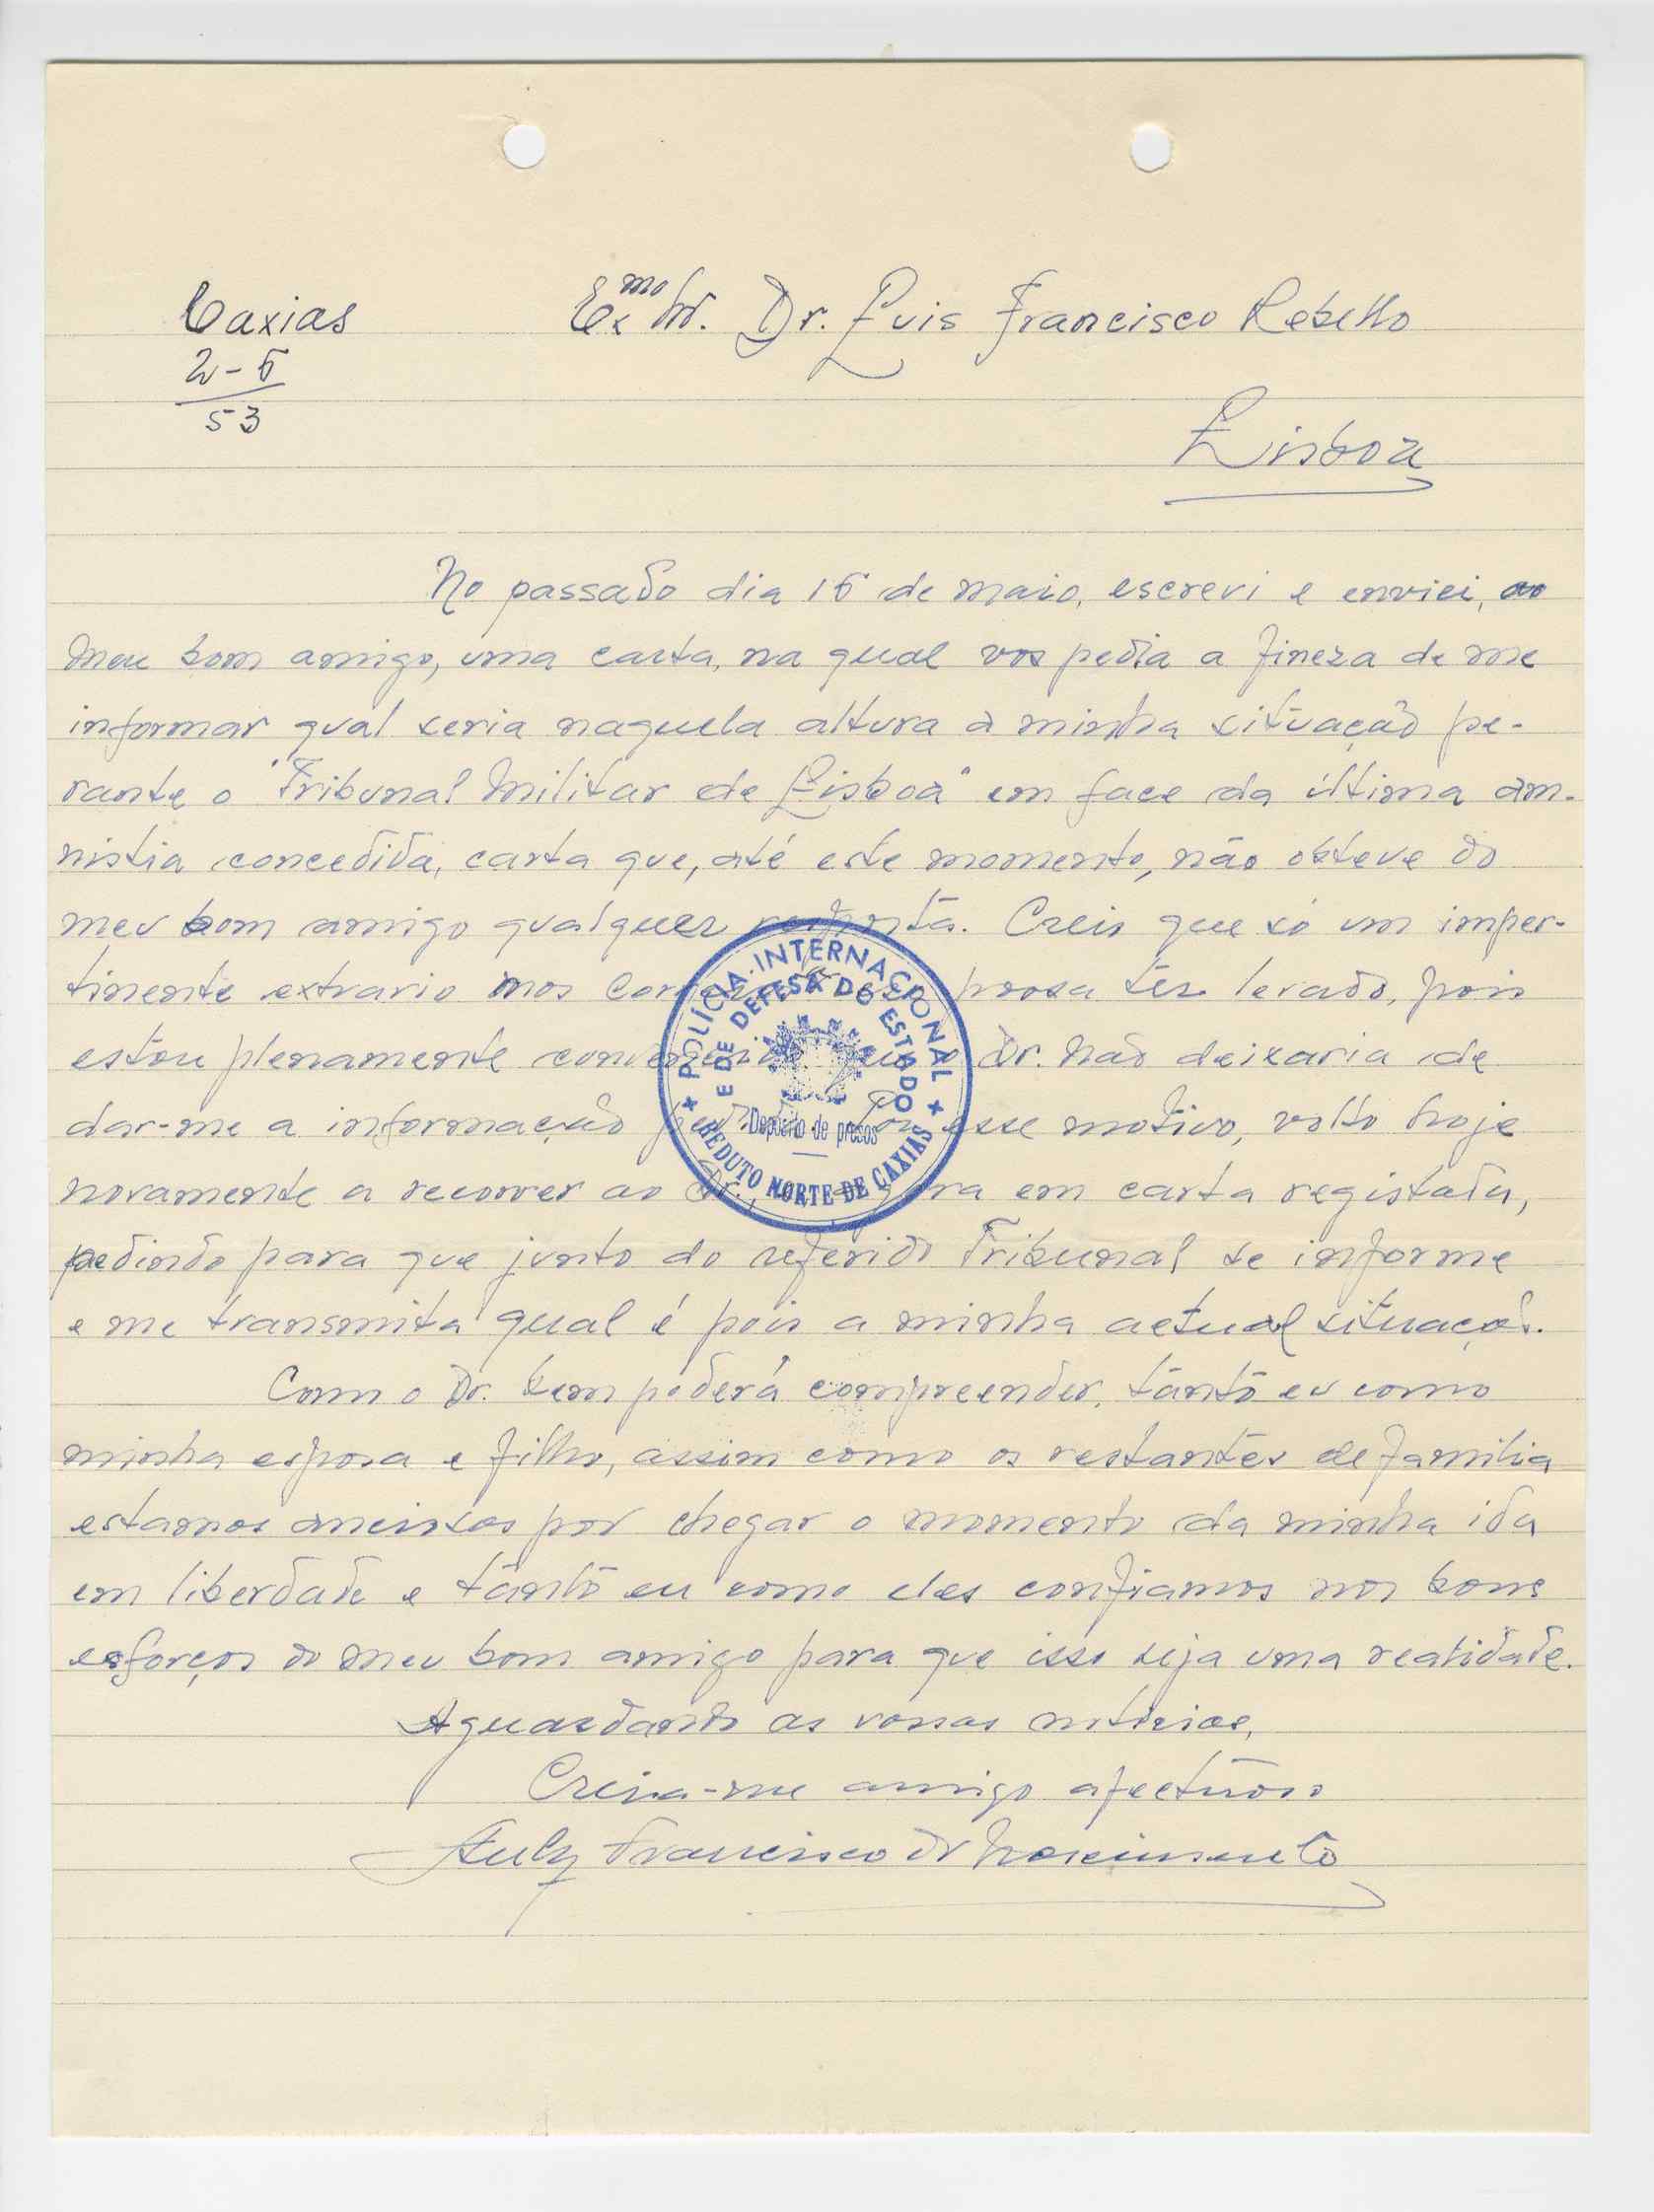 Caxias
2-6
53
Exmo Snr. Dr. Luis Francisco Rebello
Lisboa
No passado dia 16 de maio, escrevi e enviei, ao
meu bom amigo, uma carta, na qual vos pedia a fineza de me
informar qual seria naquela altura a minha situação pe-
rante o "Tribunal Militar de Lisboa" em face da última am-
nistia concedida, carta que, até este momento, não obteve do
meu bom amigo qualquer resposta. Creio que só um imper-
tinente extravio nos possa ter levado, pois
estou plenamente convencido que o Dr. não deixaria de
dar-me a informação esse motivo, volto hoje
novamente a recorrer ao Dr., agora em carta registada,
pedindo para que junto do referido Tribunal se informe
e me transmita qual é pois a minha actual situação.
Como o Dr. bem poderá compreender, tanto eu como
minha esposa e filho, assim como os restantes de familia
estamos anciosos por chegar o momento da minha ida
em liberdade e tanto eu como eles confiamos nos bons
esforços do meu bom amigo para que isso seja uma realidade.
Aguardando as vossas noticias,
Creia-me amigo afectuoso
Francisco do Nascimento
POLÍCIA INTERNACIONAL
E DE DEFESA DO ESTADO
Depósito de presos
REDUTO NORTE DE CAXIAS